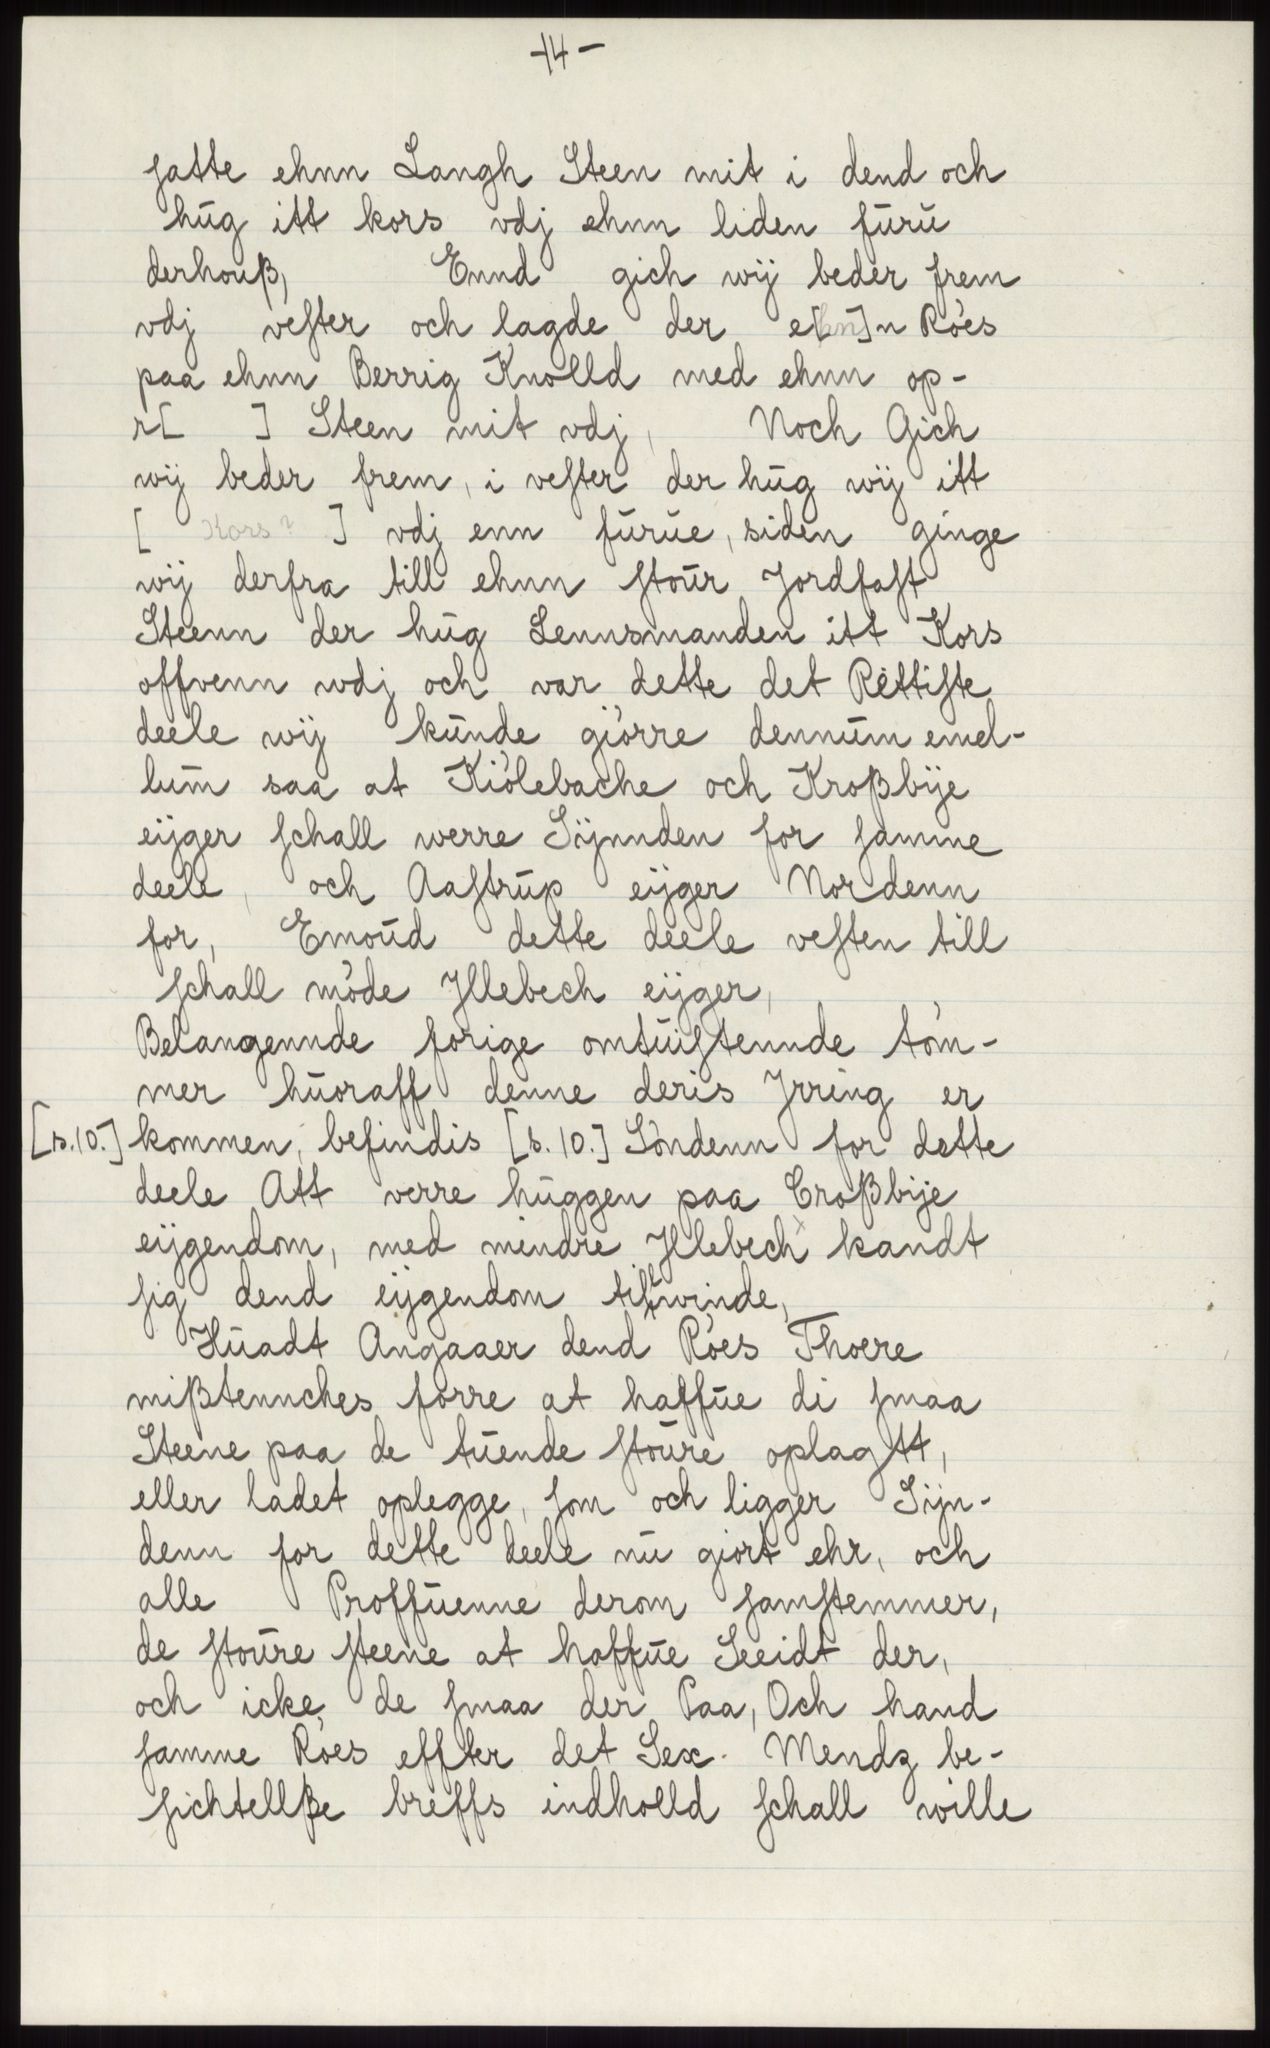 -14-
satte ehnn Langh Steen mit i dend och
hug itt kors vdj ehnn liden furu
derhouß, Ennd gich wij beder frem
vdj vester och lagde der e[hn]n Röes
paa ehnn Berrig Knolld med ehnn op-
r[ ] Steen mit vdj, Noch Gich
wij beder frem, i vester der hug wij itt
[ Kors? ] vdj enn furue, siden ginge
wij derfra till ehnn stour Jordfast
Steenn der hug Lennsmanden itt Kors
offvenn wdj och var dette det Rettiste
deele wij kunde giörre dennum emel-
lum saa at Kiölebache och Kroßbije
eijger schall werre Sijnnden for samme
deele, och Aastrup eijger Nordenn
for, Emoud dette deele vesten till
schall möde Jllebech eijger,
Belangennde forige omtuistennde töm-
mer huoraff denne deris Jrring er
[s.10.] kommen, befindis [s.10.] Söndenn for dette
deele Att verre huggen paa Croßbije
eijgendom, med mindre Jllebech x kandt
sig dend eijgendom tiltwinde,
Huadt Angaaer dend Röes Thoere
mißtennches förre at haffue di smaa
Steene paa de tuende stoure oplagtt,
eller ladet oplegge, som och ligger Sijn-
denn for dette deele nu giört ehr, och
alle Proffuenne derom samstemmer,
de stoure steene at haffue Leeidt der,
och icke de smaa der Paa, Och hand
samme Röes effter det Sex Mendz be-
sichtellße breffs indholld schall wille